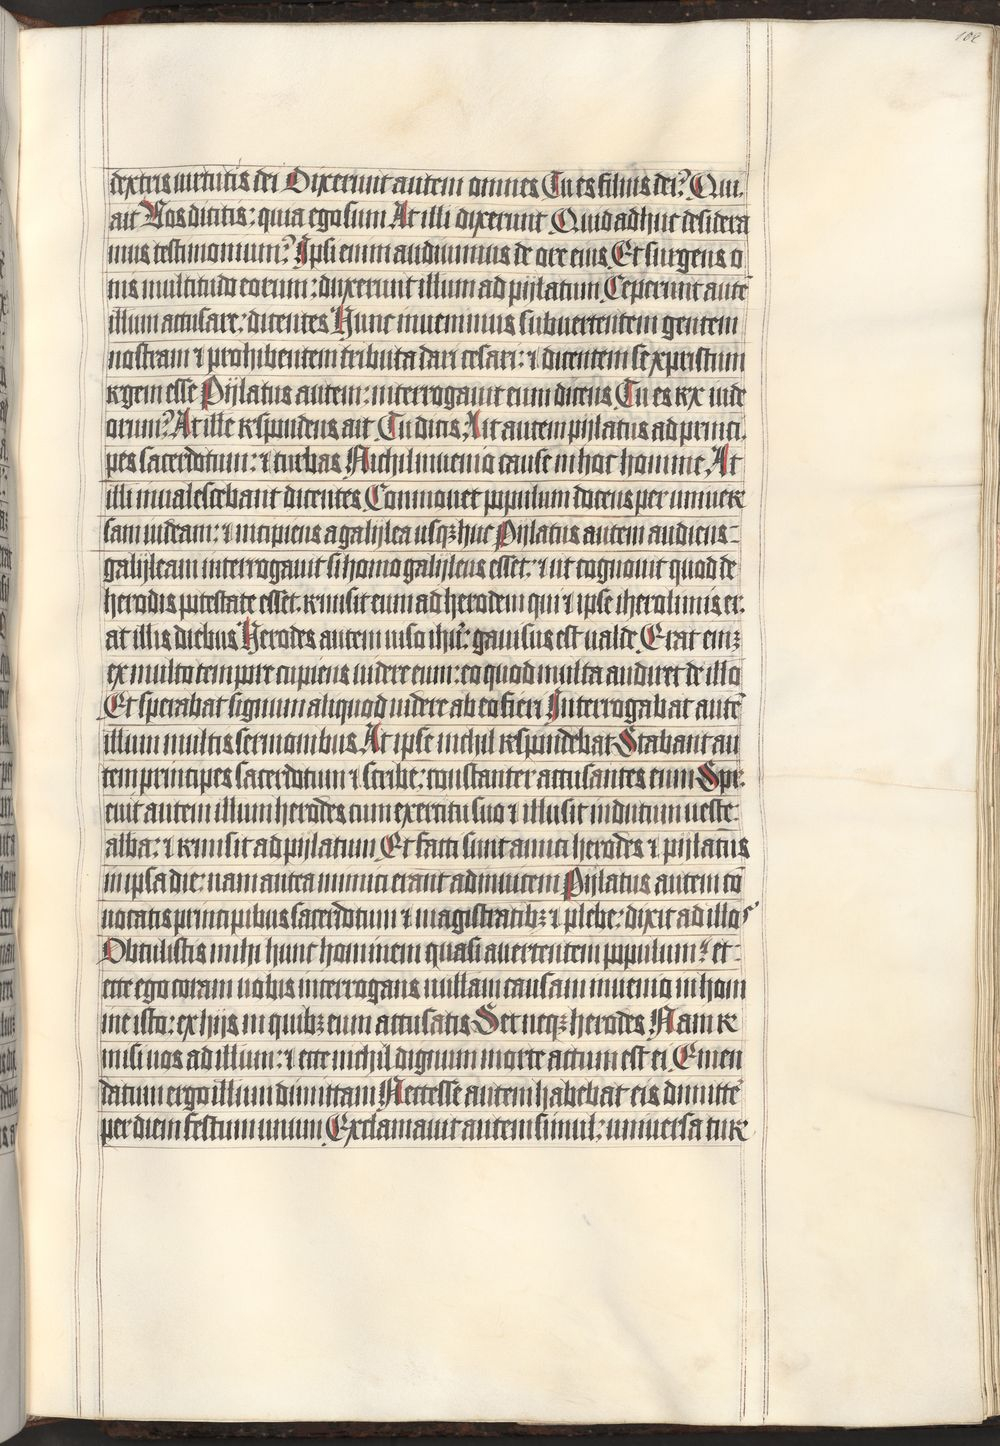 102
dexteris uirtutis dei Dixerunt autem omnes Tu es filius dei? Qui
ait Vos dicitis: quia ego sum At illi dixerunt Quid adhuc desidera
mus testimonium? Ipsi enim audiuimus de ore eius Et surgens o
nis multitudo eorum: duxerunt illum ad pijlatum Ceperunt autē
illum accusare: dicentes Hunc inuenimus subuertentem gentem
nostram ⁊ prohibentem tributa dari cesari: ⁊ dicentem se xpristum
regem esse Pijlatus autem: interrogauit eum dicens Tu es rex iude
orum? At ille respondens ait Tu dicis Ait autem pijlatus ad princi
pes sacerdotum: ⁊ turbas Nichil inuenio cause in hoc homine At
illi inualescebant dicentes Conmouet populum docens per uniuer
sam iudeam: ⁊ incipiens a galijlea usqꝫ huc Pijlatus autem audiens
galijleam interrogauit si homo galijleus esset: ⁊ ut cognouit quod de
herodis potestate esset. remisit eum ad herodem qui ⁊ ipse iherosolimis er
at illis diebus Herodes autem uiso ihū: gauisus est ualde Erat eniꝫ
ex multo tempore cupiens uidere eum: eo quod multa audiret de illo
Et sperabat signum aliquod uidere ab eo fieri Interrogabat autē
illum multis sermonibus At ipse nichil respondebat Stabant au
tem principes sacerdotum ⁊ scribe: constanter accusantes eum Spr
euit autem illum herodes cum exercitu suo ⁊ illusit indutum ueste
alba: ⁊ remisit ad pijlatum Et facti sunt amici herodes ⁊ pijlatus
in ipsa die: nam antea inimici erant adinuicem Pijlatus autem cō
uocatis principibus sacerdotum ⁊ magistratibꝫ ⁊ plebe: dixit ad illos
Obtulistis mihi hunc hominem quasi auertentem populum: et
ecce ego coram uobis interrogans nullam causam inuenio in hom
ine isto: ex hijs in quibꝫ eum accusatis Set neqꝫ herodes Nam re
misi uos ad illum: ⁊ ecce nichil dignum morte actum est ei Emen
datum ergo illum dimittam Necesse autem habebat eis dimitte
per diem festum unum Exclamauit autem simul: uniuersa tur